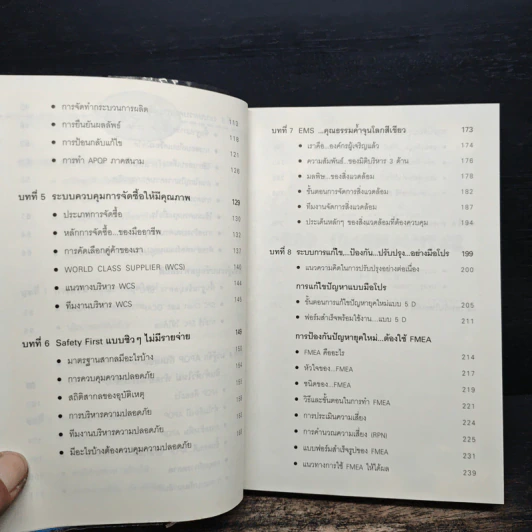 • การจัดทำกระบวนการผลิต 113
• การยืนยันผลลัพธ์ 118
• การป้อนกลับแก้ไข 121
• การทำ APQP ภาคสนาม 126
บทที่ 5 ระบบควบคุมการจัดซื้อให้มีคุณภาพ 129
• ประเภทการจัดซื้อ 130
• หลักการจัดซื้อ...ของมืออาชีพ
• การคัดเลือกคู่ค้าของเรา
• WORLD CLASS SUPPLIER (WCS)
• แนวทางบริหาร WCS
• ทีมงานบริหาร WCS
บทที่ 6 Safety First แบบชิวๆ ไม่มีรายจ่าย
• มาตรฐานสากลมีอะไรบ้าง
• การควบคุมความปลอดภัย
• สถิติสากลของอุบัติเหตุ
• การบริหารความปลอดภัย
• ทีมงานบริหารความปลอดภัย
• มีอะไรบ้างต้องควบคุมความปลอดภัย
บทที่ 7 EMS ...คุณธรรมค้ำจุนโลกสีเขียว 173
• เราคือ...องค์กรผู้เจริญแล้ว 174
• ความสัมพันธ์...ของมิติบริหาร 3 ด้าน 176
• มลพิษ...ของสิ่งแวดล้อม 178
• ขั้นตอนการจัดการสิ่งแวดล้อม 182
• ทีมงานจัดการสิ่งแวดล้อม 187
• ประเด็นหลักๆ ของสิ่งแวดล้อมที่ต้องควบคุม 194
บทที่ 8 ระบบการแก้ไข...ป้องกัน...ปรับปรุง...อย่างมือโปร 199
• แนวความคิดในการปรับปรุงอย่างต่อเนื่อง 200
การแก้ไขปัญหาแบบมือโปร
• ขั้นตอนการแก้ไขปัญหายุคใหม่แบบ 5 D 205
• ฟอร์มสำเร็จพร้อมใช้งาน...แบบ 5 D 211
การป้องกันปัญหายุคใหม่...ต้องใช้ FMEA
• FMEA คืออะไร 214
• หัวใจของ...FMEA 217
• ชนิดของ...FMEA 219
• วิธีและขั้นตอนในการทำ FMEA 221
• การประเมินความเสี่ยง 224
• การคำนวณความเสี่ยง (RPN) 225
• แบบฟอร์มสำเร็จรูปของ FMEA
• แนวทางการใช้ FMEA ให้ได้ผล 239